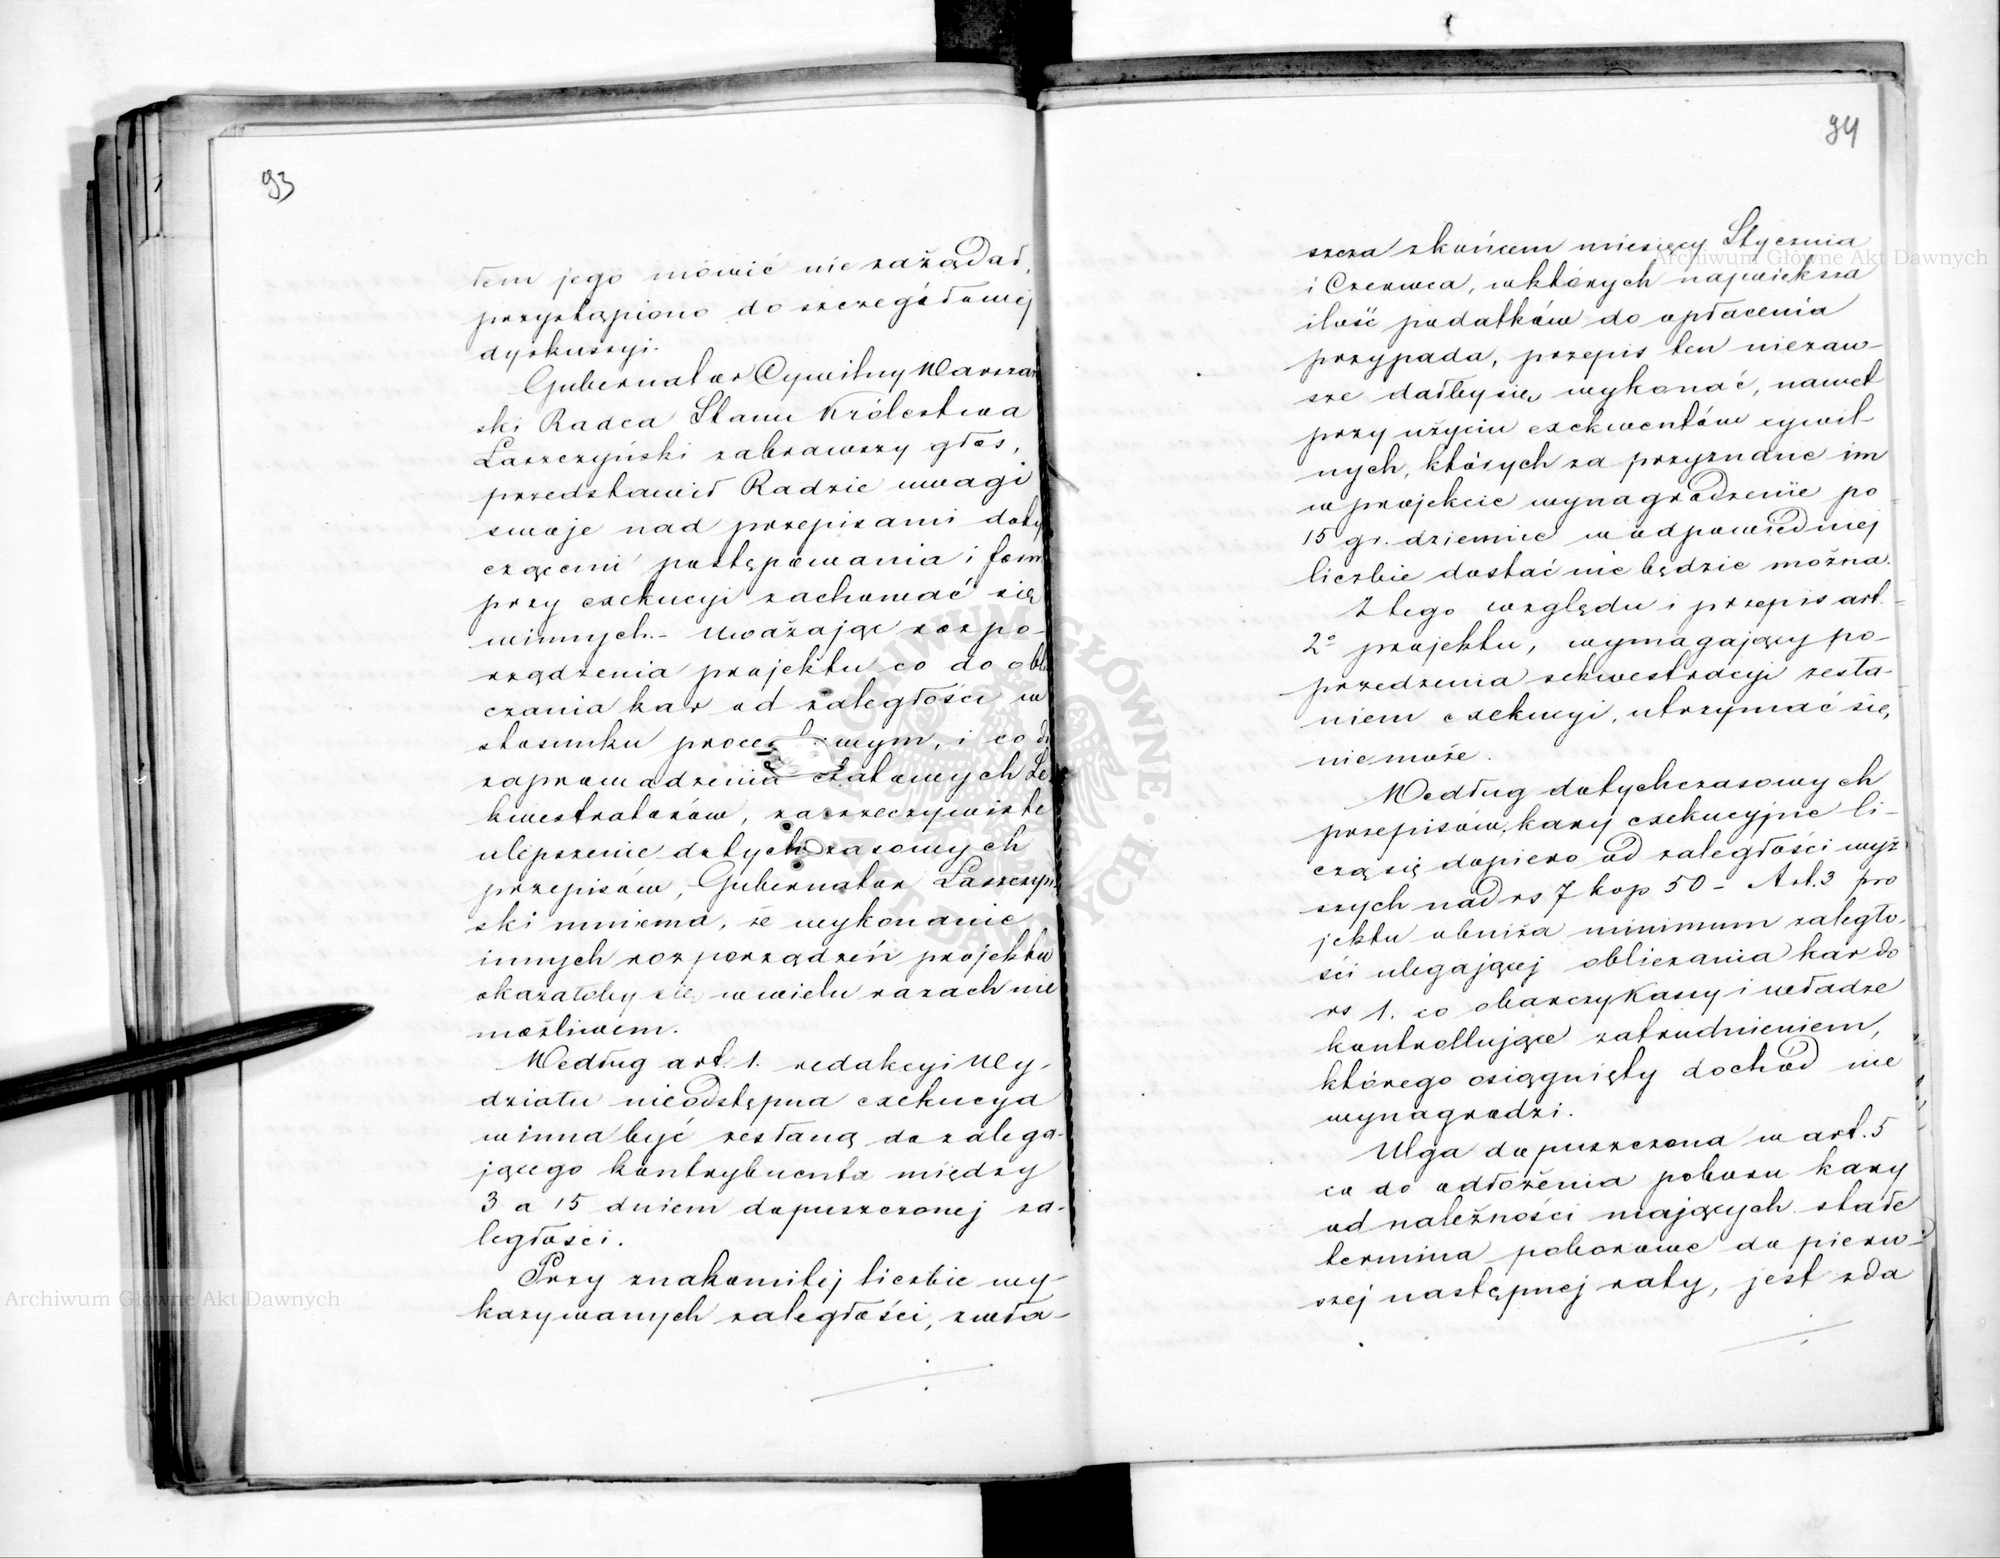 93
łem jego mówić nie zażądał,
przystąpiono do szczegółowej
dyskussyi.
Gubernator Cywilny Warszaw
ski Radca Stanu Królestwa
Łaszczyński zabrawszy głos,
przedstawił Radzie uwagi
swoje nad przepisami doty
czącemi postępowania i form
przy exekucyi zachować się
winnych. - Uważając rozpo-
rządzenia projektu co do obli
czania kar od zaległości w
stosunku procentowym, i co do
zaprowadzenia etatowych Se
kwestratorów, za rzeczywiste
ulepszenie dotychczasowych
przepisów, Gubernator Łaszczyń
ski mniema, że wykonanie
innych rozporządzeń projektu
okazałoby się w wielu razach nie
możliwem.
Według art. 1. redakcyi Wy-
działu nieodstępna exekucya
winna być zesłaną do zalega-
jącego kontrybuenta między
3 a 15 dniem dopuszczonej za-
ległości.
Przy znakomitej liczbie wy-
kazywanych zaległości, zwła-
94
szcza z końcem miesięcy Stycznia
i Czerwca, w których największa
ilość podatków do opłacenia
przypada, przepis ten niezaw-
sze dałby się wykonać, nawet
przy użyciu exekwentów cywil-
nych, których za przyznane im
w projekcie wynagrodzenie po
15 gr. dziennie w odpowiedniej
liczbie dostać nie będzie można.
Z tego względu i przepis art.
2º projektu, wymagający po-
przedzenia sekwestracyi zesła-
niem exekucyi, utrzymać się
nie może.
Według dotychczasowych
przepisów, kary exekucyjne li-
czą się dopiero od zaległości wyż
szych nad rs 7 kop 50 - Art. 3 pro
jektu obniża minimum zaległo-
ści ulegającej obliczania kar do
rs 1. co obarczy Kassy i władze
kontrollujące zatrudnieniem,
którego osiągnięty dochód nie
wynagrodzi.
Ulga dopuszczona w art. 5
co do odłożenia poboru kary
od należności mających stałe
termina poborowe do pierw-
szej następnej raty, jest zda
Archiwum Główne Akt Dawnych
Archiwum Główne Akt Dawnych
ARCHIWUM GŁÓWNE AKT DAWNYCH